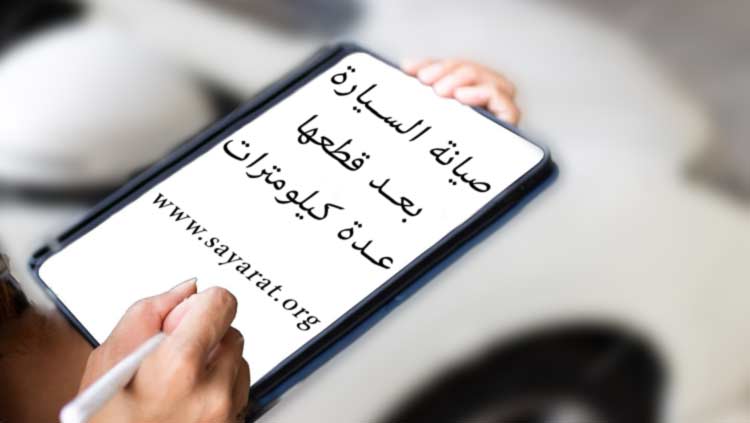 صيانة السيارة
بعد قطعها
عدة كيلومترات
www.sayarat.org